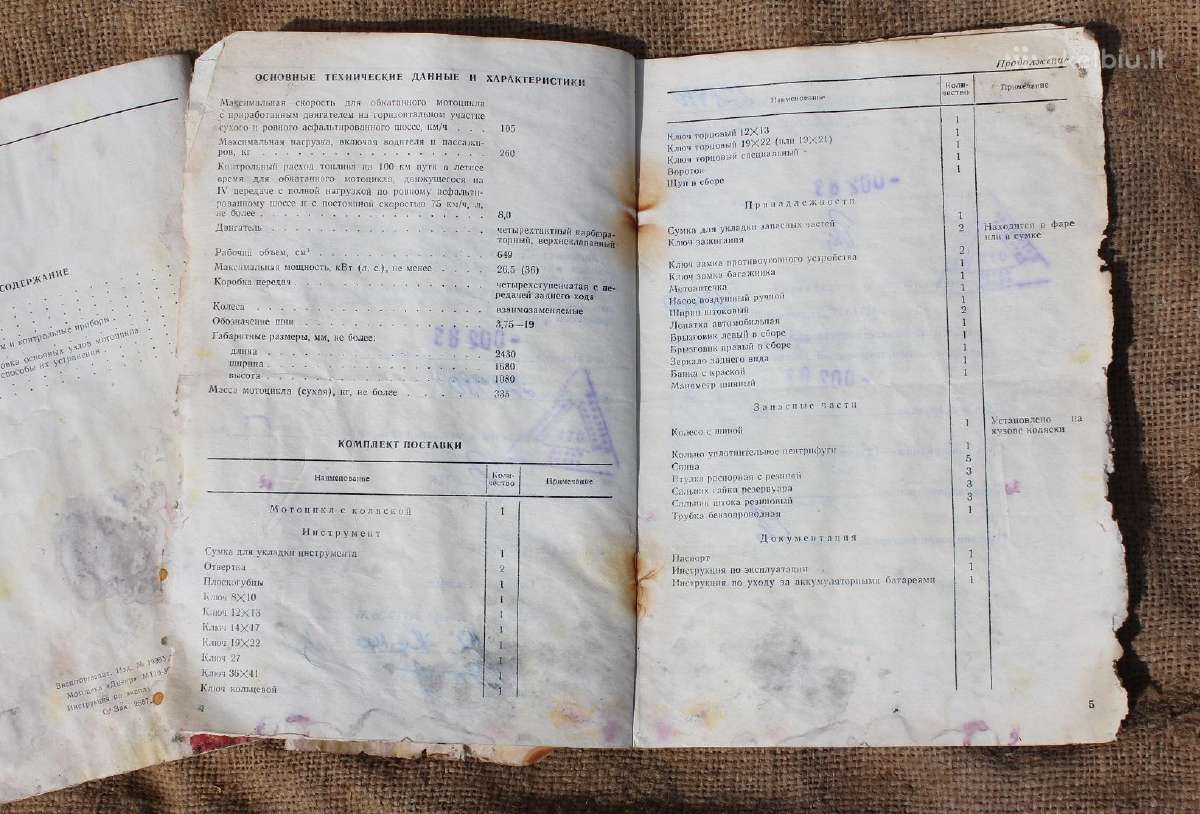 СОДЕРЖАНИЕ
и контрольные приборы
основных узлов мотоцикла
способы их устранения
Внешторгиздат. Изд. №
Мотоцикл «Днепр»
Инструкция по
ОСНОВНЫЕ ТЕХНИЧЕСКИЕ ДАННЫЕ И ХАРАКТЕРИСТИКИ
Максимальная скорость для обкатанного мотоцикла
с приработанным двигателем на горизонтальном участке
сухого и ровного асфальтированного шоссе, км/ч . . . 105
Максимальная нагрузка, включая водителя и пассажи-
ров, кг . . . 260
Контрольный расход топлива на 100 км пути в летнее
время для обкатанного мотоцикла, движущегося на
IV передаче с полной нагрузкой по ровному асфальти-
рованному шоссе и с постоянной скоростью 75 км/ч, л,
не более . . . 8,0
Двигатель . . . четырехтактный карбюра-
торный, верхнеклапанный
Рабочий объем, см³ . . . 649
Максимальная мощность, кВт (л. с.), не менее . . . 26,5 (36)
Коробка передач . . . четырехступенчатая с пе-
редачей заднего хода
Колеса . . . взаимозаменяемые
Обозначение шин . . . 3,75—19
Габаритные размеры, мм, не более:
длина . . . 2430
ширина . . . 1680
высота . . . 1080
Масса мотоцикла (сухая), кг, не более . . . 335
КОМПЛЕКТ ПОСТАВКИ
Наименование Коли-чество Примечание
Мотоцикл с коляской 1
Инструмент
Сумка для укладки инструмента 1
Отвертка 2
Плоскогубцы 1
Ключ 8×10 1
Ключ 12×13 1
Ключ 14×17 1
Ключ 19×22 1
Ключ 27 1
Ключ 36×41 1
Ключ кольцевой 1
4
Продолжение
Наименование Коли-чество Примечание
Ключ торцовый 12×13 1
Ключ торцовый 19×22 (или 19×21) 1
Ключ торцовый специальный 1
Вороток 1
Щуп в сборе 1
Принадлежности
Сумка для укладки запасных частей 1
Ключ зажигания 2 Находится в фаре
или в сумке
Ключ замка противоугонного устройства 2
Ключ замка багажника 1
Мотоаптечка 1
Насос воздушный ручной 1
Шприц штоковый 1
Лопатка автомобильная 2
Брызговик левый в сборе 1
Брызговик правый в сборе 1
Зеркало заднего вида 1
Банка с краской 1
Манометр шинный 1
Запасные части
Колесо с шиной 1 Установлено на
кузове коляски
Кольцо уплотнительное центрифуги 1
Спица 5
Втулка распорная с резиной 3
Сальник гайки резервуара 3
Сальник штока резиновый 3
Трубка бензопроводная 1
Документация
Паспорт 1
Инструкция по эксплуатации 1
Инструкция по уходу за аккумуляторными батареями 1
5